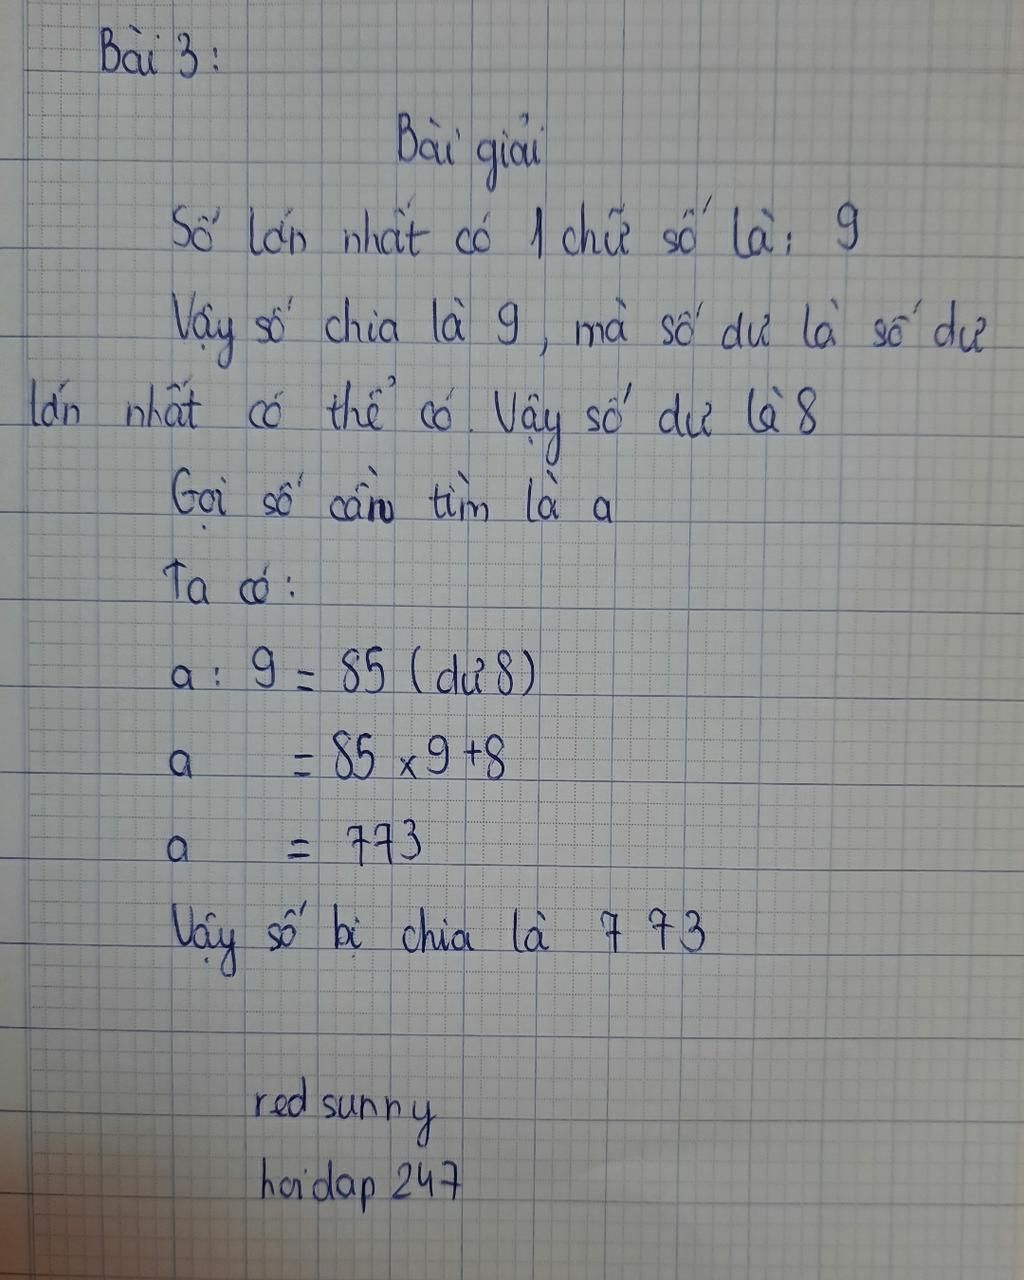 Bài 3:
Bài giải
Số lớn nhất có 1 chữ số là: 9
Vậy số chia là 9, mà số dư là số dư
lớn nhất có thể có. Vậy số dư là 8
Gọi số cần tìm là a
Ta có:
a : 9 = 85 (dư 8)
a = 85 x 9 + 8
a = 773
Vậy số bị chia là 773
red sunny
hoidap 247